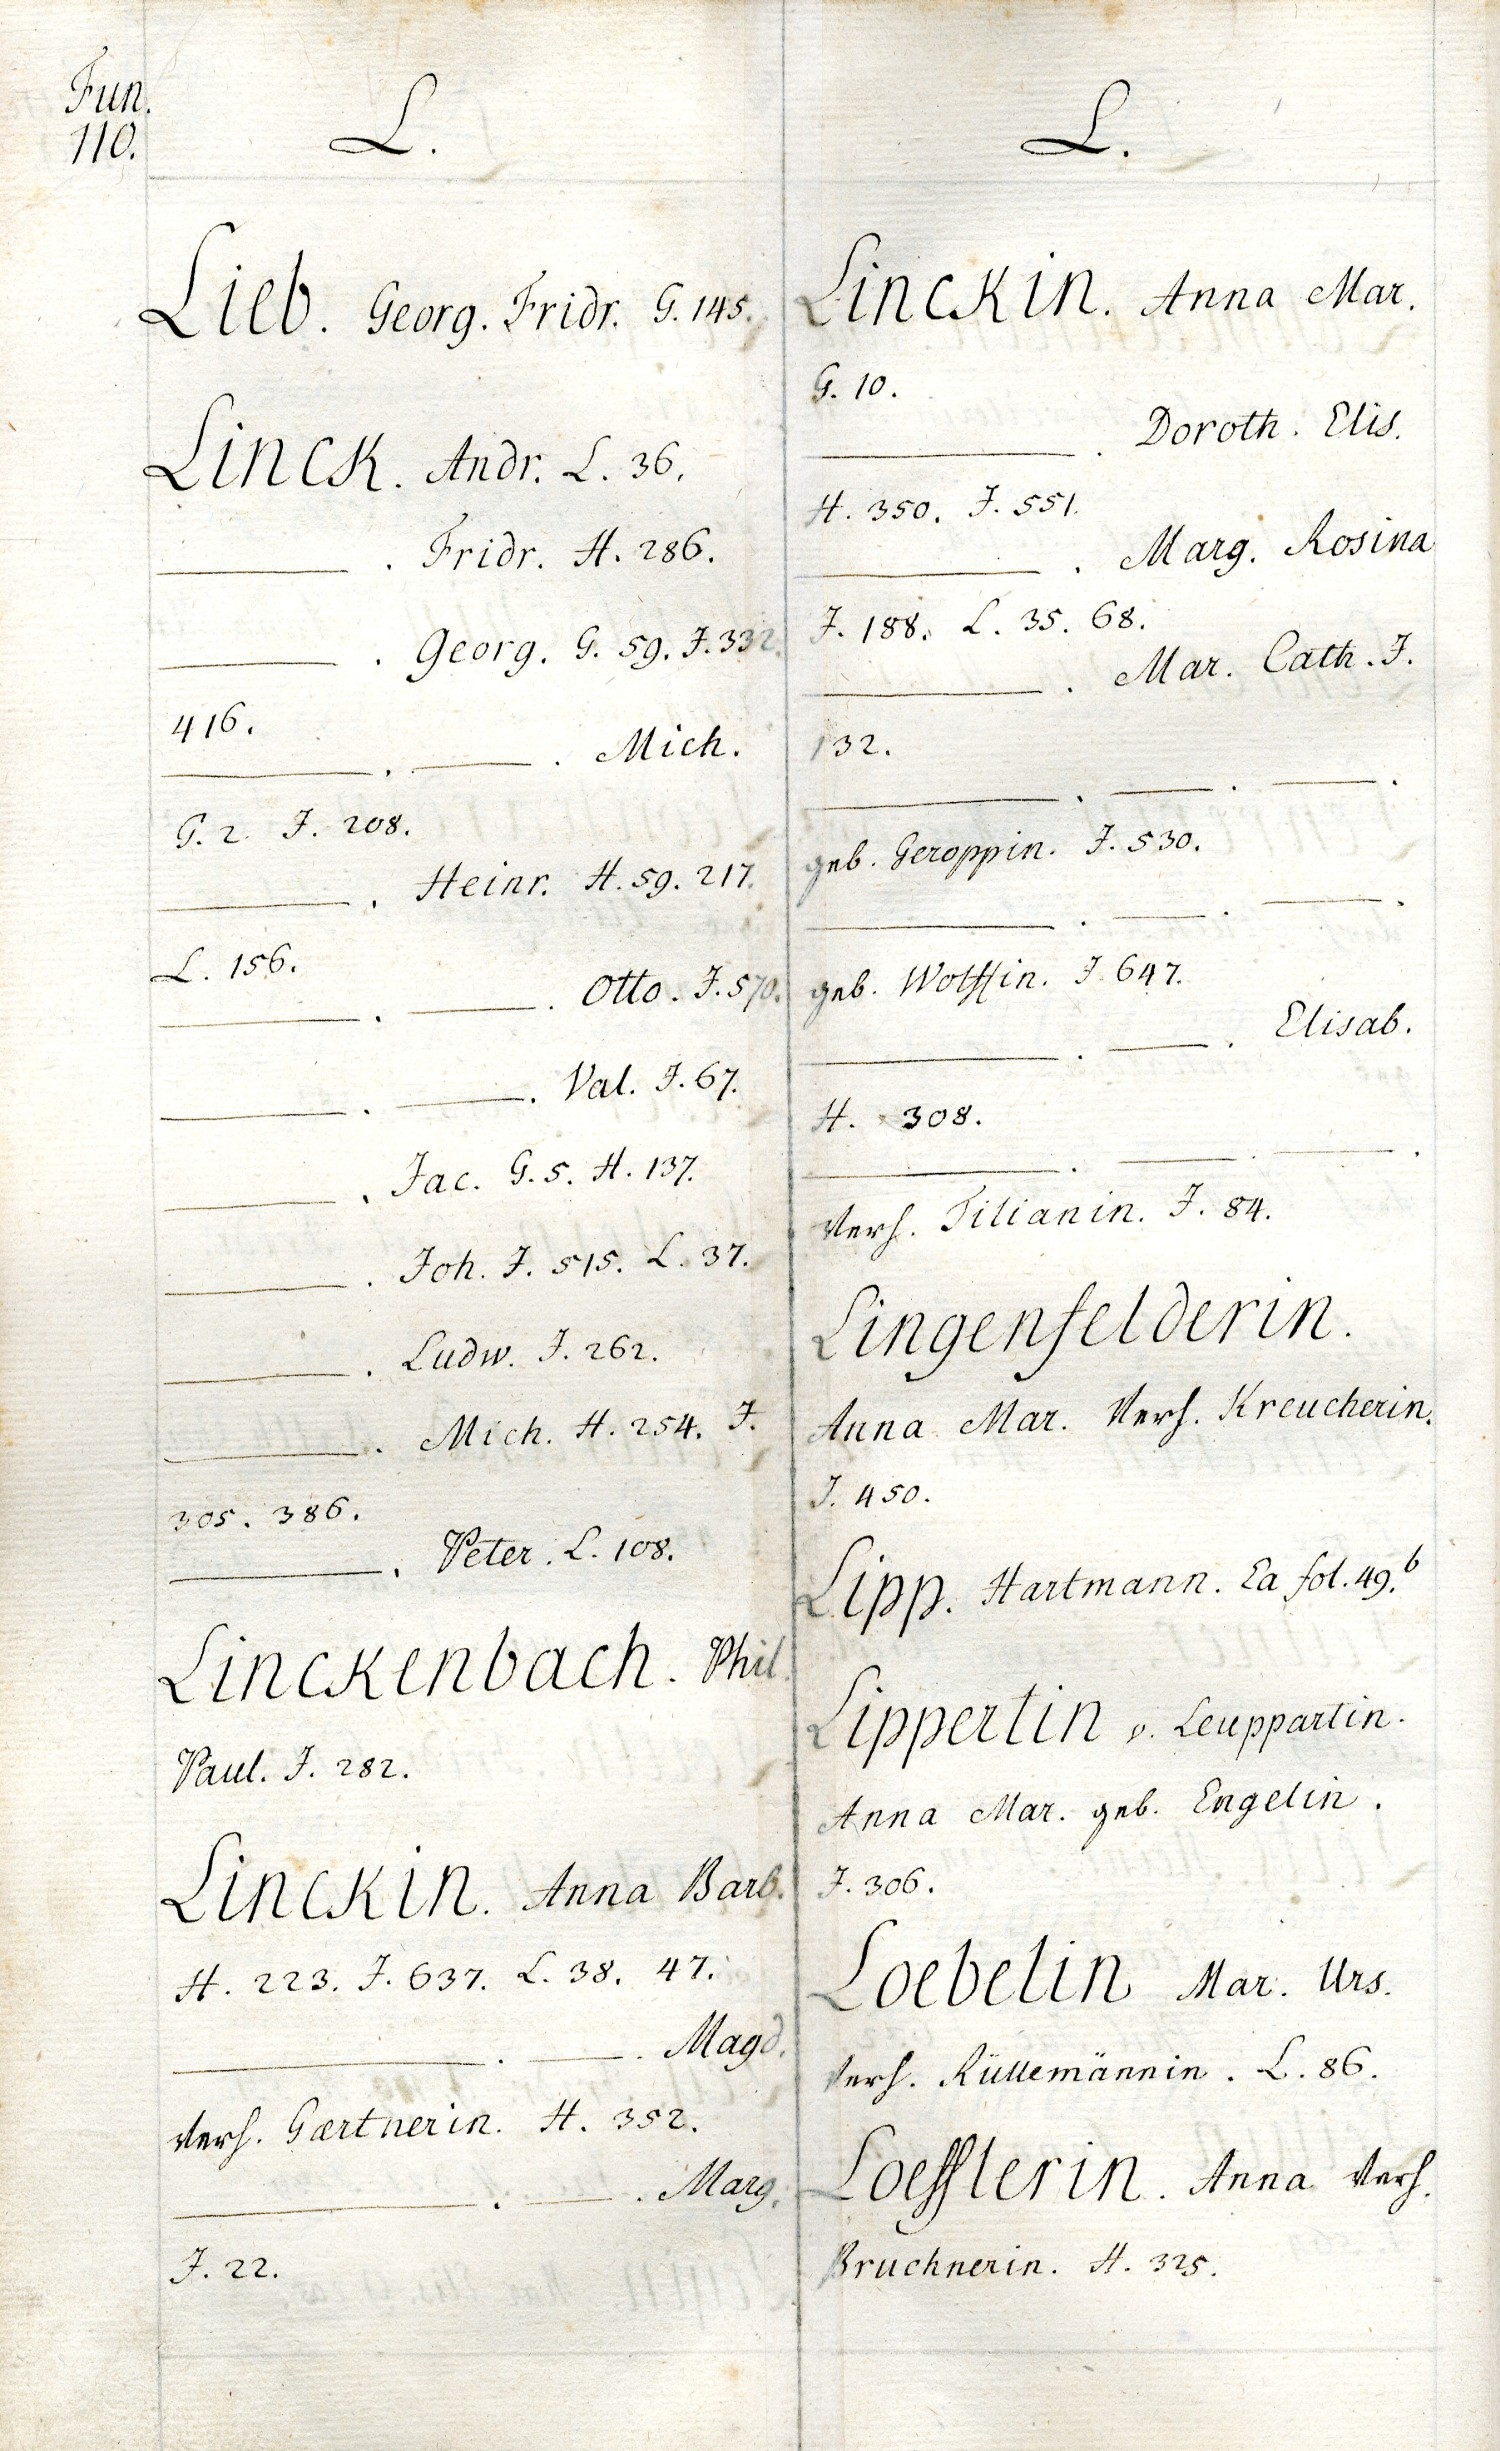 Fun.
110.
L.
Lieb. Georg. Fridr. G. 145.
Linck. Andr. L. 36.
———. Fridr. H. 286.
———. Georg. G. 59. J. 332.
416.
———. ———. Mich.
G. 2. J. 208.
———. Heinr. H. 59. 217.
L. 156.
———. ———. Otto. J. 570.
———. ———. Val. J. 67.
———. Jac. G. 5. H. 137.
———. Joh. J. 515. L. 37.
———. Ludw. J. 262.
———. Mich. H. 254. J.
305. 386.
———. Peter. L. 108.
Linckenbach. Phil.
Paul. J. 282.
Linckin. Anna Barb.
H. 223. J. 637. L. 38. 47.
———. ———. Magd.
Verh. Gærtnerin. H. 352.
———. ———. Marg.
J. 22.
L.
Linckin. Anna Mar.
G. 10.
———. Doroth. Elis.
H. 350. J. 551.
———. Marg. Rosina
J. 188. L. 35. 68.
———. Mar. Cath. J.
132.
———. ———. ———.
geb. Geroppin. J. 530.
———. ———. ———.
geb. Wolffin. J. 647.
———. ———. Elisab.
H. 308.
———. ———. ———.
Verh. Tilianin. J. 84.
Lingenfelderin.
Anna Mar. Verh. Kreucherin.
J. 450.
Lipp. Hartmann. Ea fol. 49.b
Lippertin v. Leuppartin.
Anna Mar. geb. Engelin.
J. 306.
Loebelin Mar. Urs.
Verh. Rüllemännin. L. 86.
Loefflerin. Anna Verh.
Bruchnerin. H. 325.